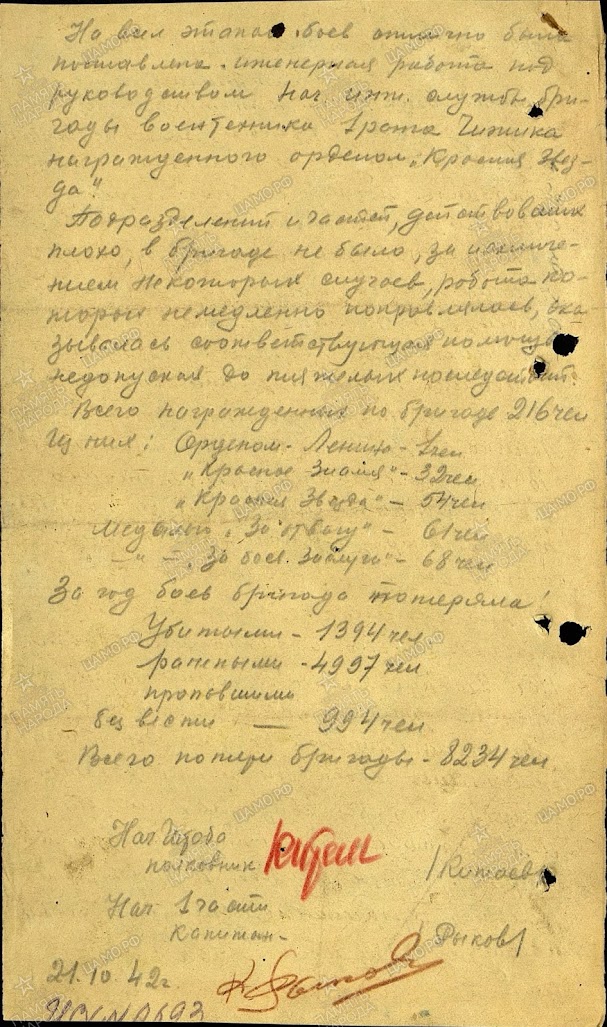 На всех этапах боев отлично была
поставлена инженерная работа под
руководством Нач инж. службы бри-
гады воентехника 1 ранга Чижика
награжденного орденом „Красная Звез-
да"
Подразделений и частей, действовавших
плохо, в бригаде не было, за исключе-
нием некоторых случаев, работа ко-
торых немедленно поправлялась, ока
зывалась соответствующая помощь
недопуская до тяжелых последствий.
Всего награжденных по бригаде 216 чел
Из них: Орденом - Ленина - 1 чел
„Красное Знамя" - 32 чел
„Красная Звезда" - 54 чел
Медалью „За отвагу" - 61 чел
-"- „За боев. Заслуги" - 68 чел
За год боев бригада потеряла:
Убитыми - 1394 чел
ранеными - 4997 чел
пропавшими
без вести - 994 чел
Всего потери бригады - 8234 чел
Нач Штаба
полковник /Китаев/
Нач 1 части
капитан - /Рыков/
21.10.42г.